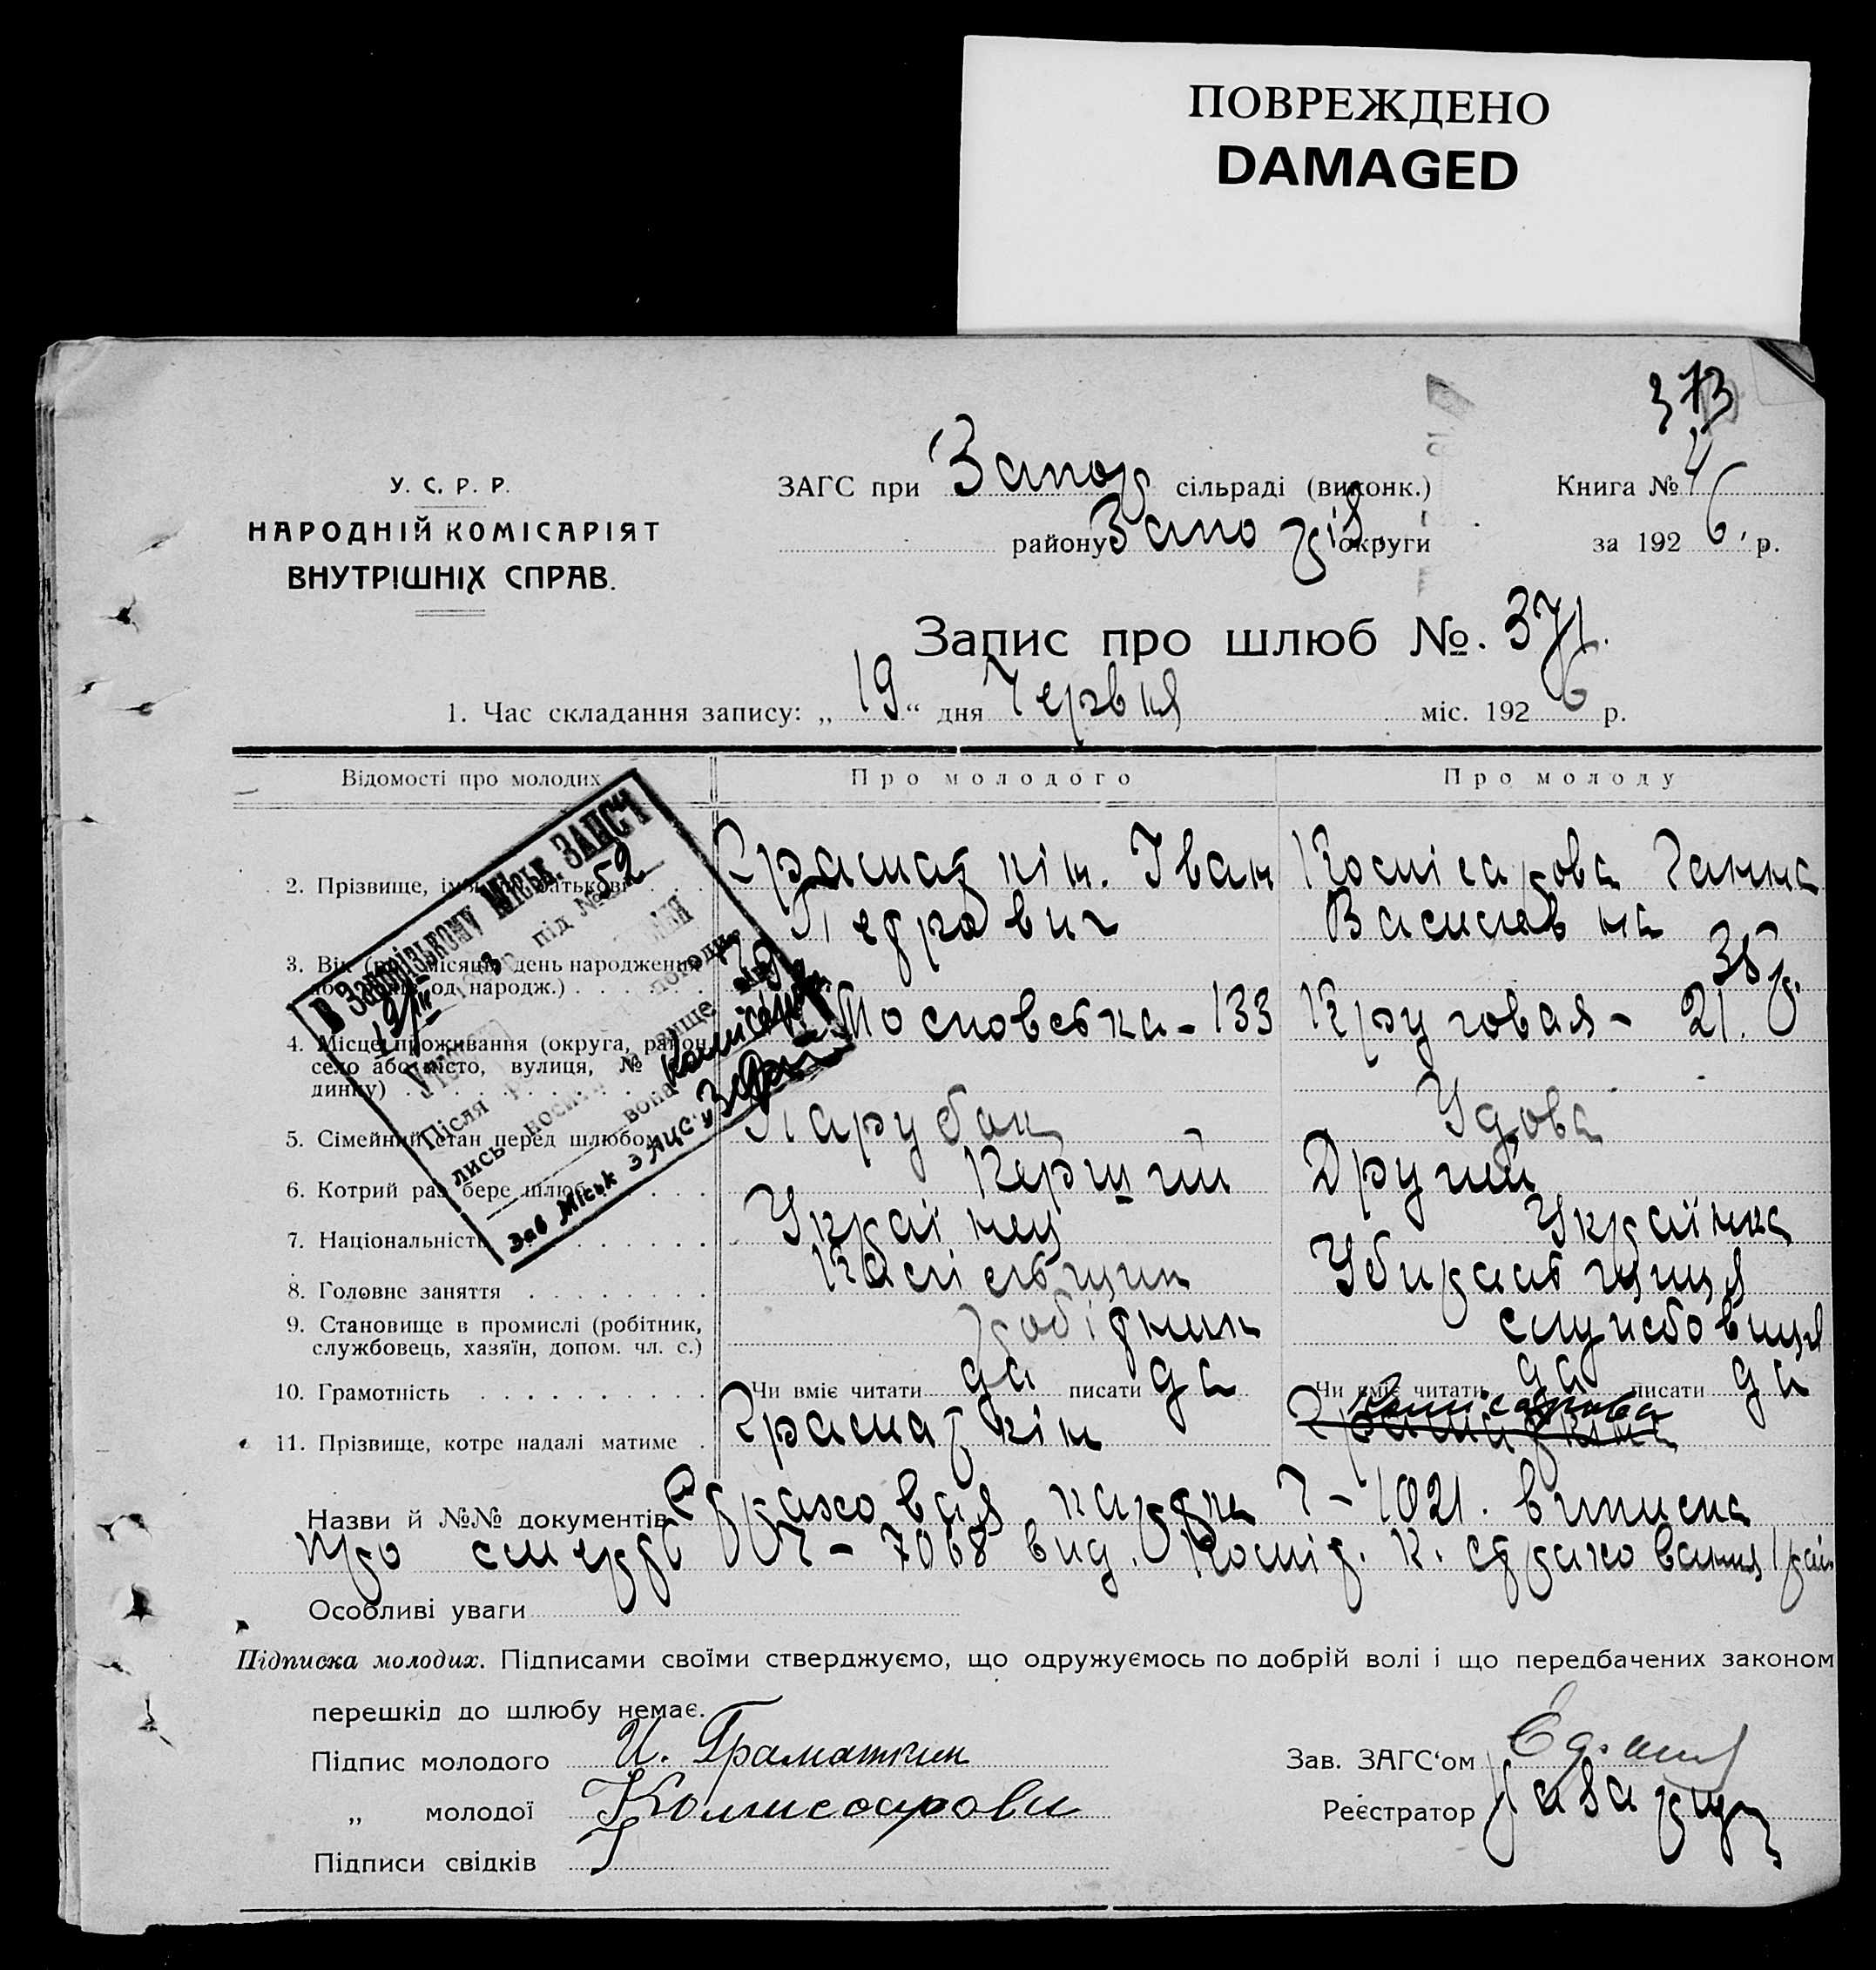 ПОВРЕЖДЕНО
DAMAGED
373
У. С. Р. Р.
НАРОДНІЙ КОМІСАРІЯТ
ВНУТРІШНІХ СПРАВ.
ЗАГС при Запор сільраді (виконк.)
району Запоріз округи
Книга № 4
за 1926. р.
Запис про шлюб №. 371.
1. Час складання запису: „19“ дня Червня міс. 1926 р.
Відомості про молодих Про молодого Про молоду
2. Прізвище, ім'я батькові Граматкін. Іван Комісарова Ганна
Петрович Василівна
3. Вік (рік, місяць, день народження 38 р.
од народж.)
4. Місце проживання (округа, район, Московська - 133 Кругован - 21.
село або місто, вулиця, №
динку)
5. Сімейний стан перед шлюбом Парубок Удова
6. Котрий раз бере шлюб Перший Другий
7. Національність Українец Українка
8. Головне заняття Камельщик Убиральщиця
9. Становище в промислі (робітник, робітник службовиця
службовець, хазяїн, допом. чл. с.)
10. Грамотність Чи вміє читати да писати да Чи вміє читати да писати да
Комісарова
11. Прізвище, котре надалі матиме Граматкін Граматкіна
В Запорізькому Міськ. ЗАПСЧ
під № 52
Після
лись
носить прізвище
вона Комісарова
Зав Міськ ЗАЦС'У
Назви й №№ документів Страховая картка Г-1021. виписка
про смерть № - 7068 вид. Комід. К. страхования
Особливі уваги
Підписка молодих. Підписами своїми стверджуємо, що одружуємось по добрій волі і що передбачених законом
перешкід до шлюбу немає.
Підпис молодого И. Граматкин
„ молодої Комиссарова
Підписи свідків
Зав. ЗАГС'ом
Реєстратор